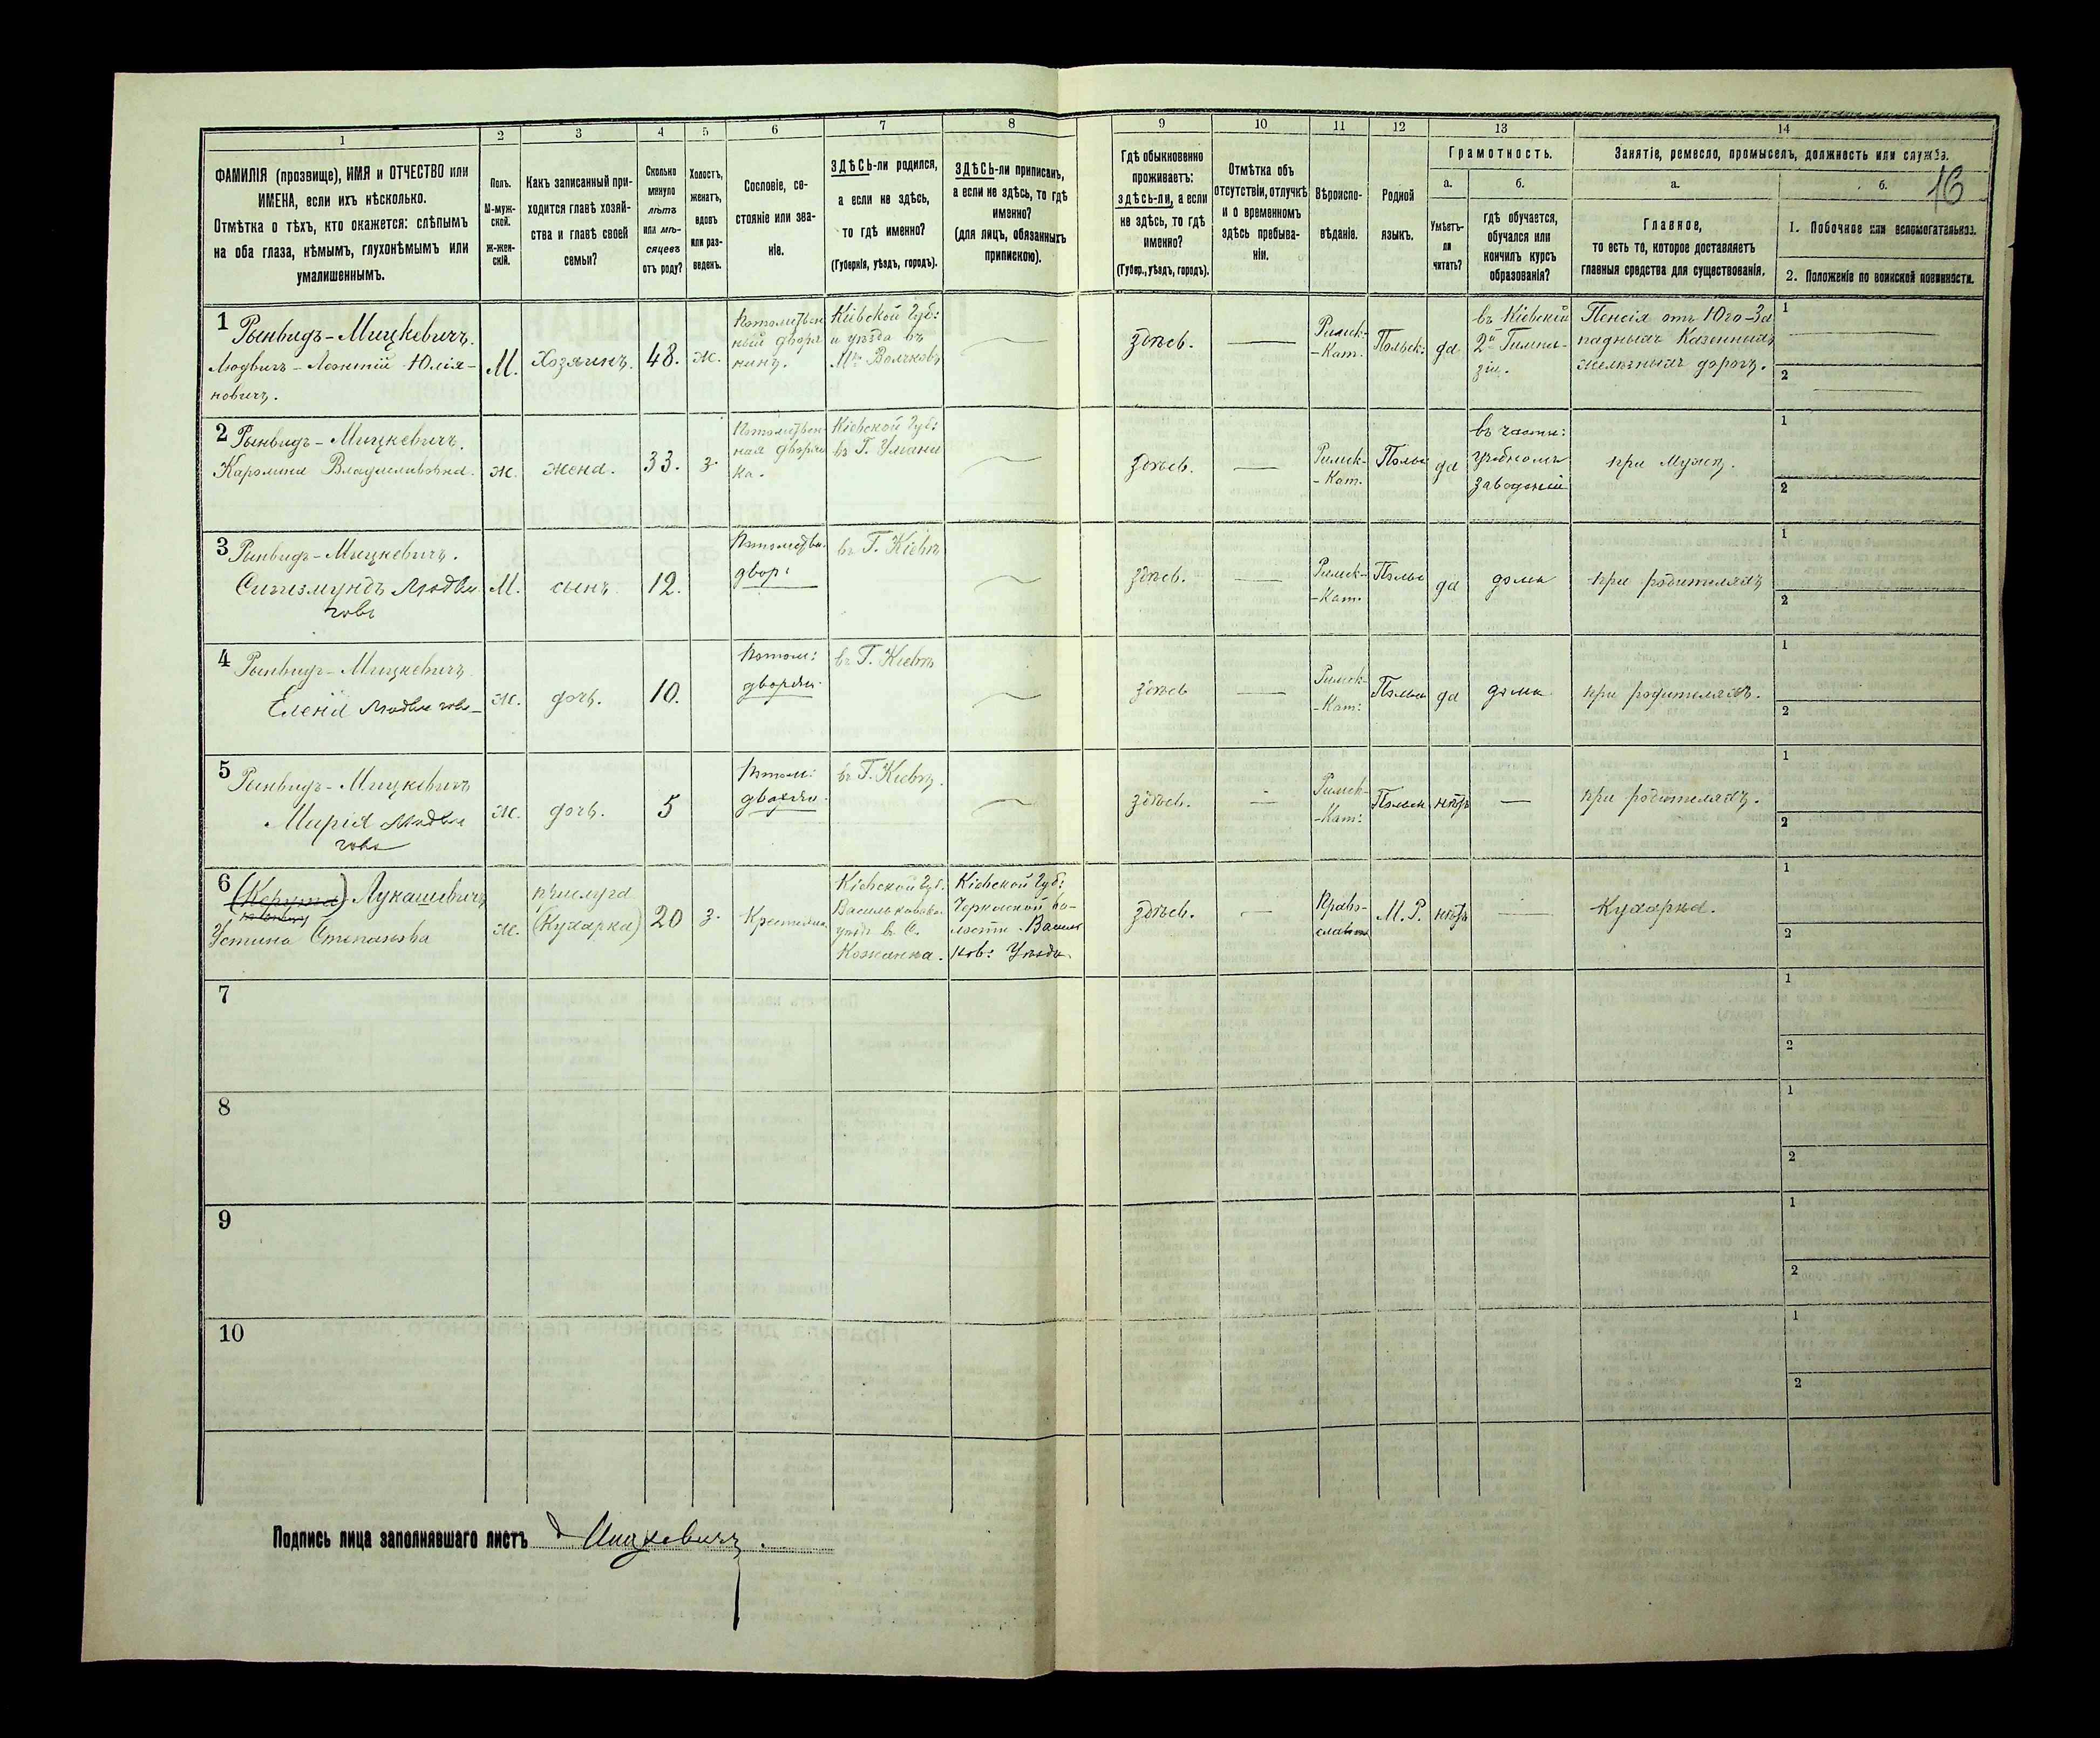 1 2 3 4 5 6 7 8 9 10 11 12 13 14
16
ФАМИЛІЯ (прозвище), ИМЯ и ОТЧЕСТВО или
ИМЕНА, если ихъ нѣсколько.
Отмѣтка о тѣхъ, кто окажется: слѣпымъ
на оба глаза, нѣмымъ, глухонѣмымъ или
умалишеннымъ.
Полъ.
М-муж-
ской.
Ж-жен-
скій.
Какъ записанный при-
ходится главѣ хозяй-
ства и главѣ своей
семьи?
Сколько
минуло
лѣтъ
или мѣ-
сяцевъ
отъ роду?
Холостъ,
женатъ,
вдовъ
или раз-
веденъ.
Сословіе, со-
стояніе или зва-
ніе.
ЗДѢСЬ-ли родился,
а если не здѣсь,
то гдѣ именно?
(Губернія, уѣздъ, городъ).
ЗДѢСЬ-ли приписанъ,
а если не здѣсь, то гдѣ
именно?
(для лицъ, обязанныхъ
припискою).
Гдѣ обыкновенно
проживаетъ:
здѣсь-ли, а если
не здѣсь, то гдѣ
именно?
(Губер., уѣздъ, городъ).
Отмѣтка объ
отсутствіи, отлучкѣ
и о временномъ
здѣсь пребыва-
ніи.
Вѣроиспо-
вѣданіе.
Родной
языкъ.
Грамотность.
а.
Умѣетъ-
ли
читать?
б.
гдѣ обучается,
обучался или
кончилъ курсъ
образованія?
Занятіе, ремесло, промыселъ, должность или служба.
а.
Главное,
то есть то, которое доставляетъ
главныя средства для существованія.
б.
1. Побочное или вспомогательное.
2. Положеніе по воинской повинности.
1 Рынвидъ-Мицкевичъ.
Людвигъ-Леонтій Юлія-
новичъ.
М.
Хозяинъ.
48.
ж.
Потомствен
ный дворя
нинъ.
Кіевской Губ:
и уѣзда въ
здѣсь.
Римск-
-Кат.
Польск:
да
въ Кіевской
2й Гимна-
зіи.
Пенсія отъ Юго-За
падныхъ Казенныхъ
желѣзныхъ дорогъ.
1
2
2 Рынвидъ-Мицкевичъ.
Каролина Владиславовна.
ж.
жена.
33.
з.
Потомствен
ная дворян
ка.
Кіевской Губ:
въ Г. Умани
здѣсь.
Римск-
-Кат.
Польс
да
въ частн:
учебномъ
заведеніи
при Мужѣ.
1
2
3 Рынвидъ-Мицкевичъ.
Сигизмундъ Людви
говъ
М.
сынъ
12.
Потомствен.
двор:
въ Г. Кіевѣ
здѣсь.
Римск-
-Кат.
Польс
да
дома
при родителяхъ
1
2
4 Рынвидъ-Мицкевичъ
Елена Людвигов-
ж.
дочь.
10.
Потом:
дворян.
въ Г. Кіевѣ
здѣсь
Римск-
-Кат:
Польс
да
дома
при родителяхъ.
1
2
5 Рынвидъ-Мицкевичъ
Марія Людви
гова
ж.
дочь.
5
Потом:
дворян.
въ Г. Кіевѣ.
здѣсь.
Римск-
-Кат:
Польск
нѣтъ
при родителяхъ.
1
2
6 Лукашевичъ
Устина Степанова
ж.
прислуга
(Кухарка)
20
з.
Крестьян
Кіевской Губ.
Васильковов.
уѣзд въ С.
Кожанка.
Кіевской Губ:
во-
лости Василь
ков: Уѣзда.
здѣсь.
Право-
славн
М. Р.
нѣтъ
Кухарка.
1
2
7
1
2
8
1
2
9
1
2
10
1
2
Подпись лица заполнявшаго листъ Мицкевичъ.